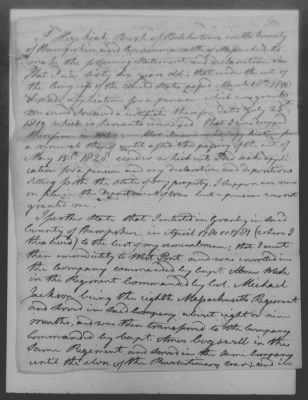 I Hezekiah Beigh of Belchertown in the County
of Hampshire and Commonwealth of Massachusetts
make the following Statement and declaration viz
That I am sixty six years old; that under the act of
the Congress of the United States passed March 18th 1818
I made application for a pension which was allowed
me and received a certificate therefor dated July 23
1819
a renewal thereof until after the passing of the act of
May 15th 1828 under which act I made appli
cation for a pension and my declaration and depositions
setting forth the state of my property I suppose are now
on file in the Department of War but a pension was not
granted me.
I further State that I inlisted in Granby in said
County of Hampshire in April 1780 or 1781 (where I
then lived) to the best of my remembrance; that I went
then immediately to West Point and was enrolled in
the Company commanded by Capt. Abner Wade
in the Regiment Commanded by Col. Michael
Jackson being the eighth Massachusetts Regiment
and served in said Company about eight or nine
months, and was then transferred to the Company
Commanded by Capt. Amos Cogswell in the
Same Regiment and served in the same Company
until the close of the Revolutionary war; and it